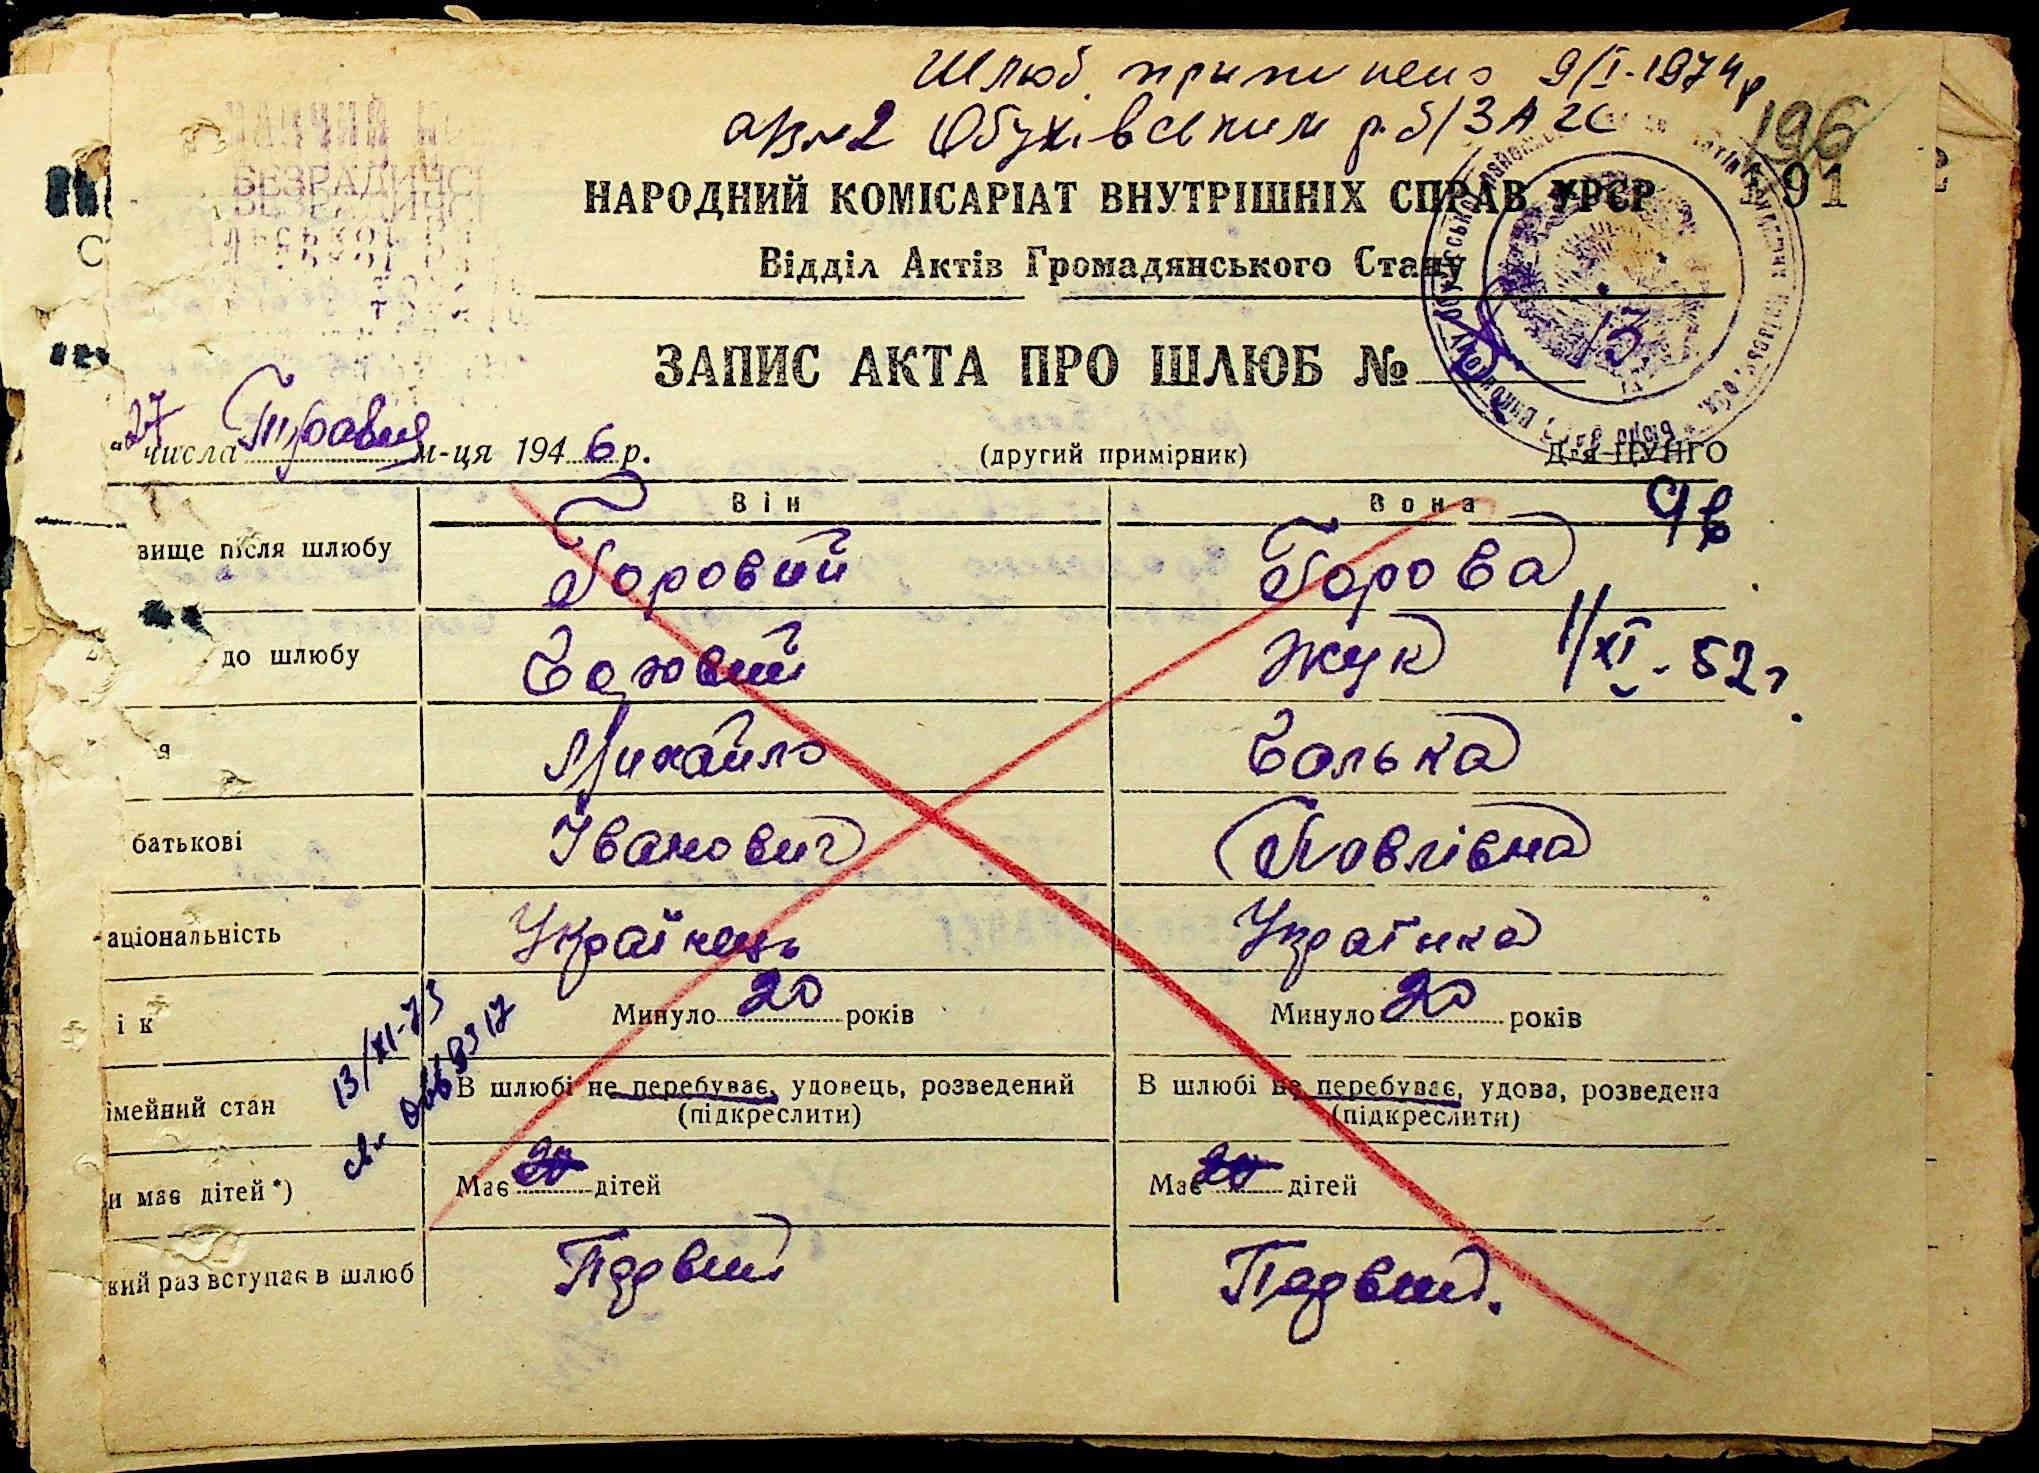 Шлюб припинено 9/I-1974р
а/з №2 Обухівським р.б/ЗАГС
196
191
БЕЗРАДИЧСЬ
НАРОДНИЙ КОМІСАРІАТ ВНУТРІШНІХ СПРАВ УРСР
Відділ Актів Громадянського Стану
ЗАПИС АКТА ПРО ШЛЮБ № 13
"27 числа Травня м-ця 1946 р.
(другий примірник)
Для ЦУНГО
Він
Вона
вище після шлюбу
Боровий
Борова
св
до шлюбу
Жук
11/XI-52г.
я
Михайло
Галька
батькові
Іванович
Павлівна
аціональність
Українець
Українка
ік
Минуло 20 років
Минуло 20 років
13/XI-73
імейний стан
В шлюбі не перебуває, удовець, розведений
(підкреслити)
В шлюбі не перебуває, удова, розведена
(підкреслити)
и має дітей *)
Має 20 дітей
Має 20 дітей
кий раз вступає в шлюб
Первий
Первий.